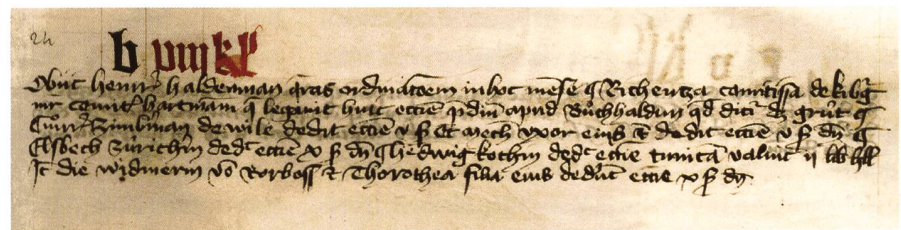 24
b viii kl
Obiit henr haldenman qras ordinacoem in hoc mese Richentza comitissa de kibg
mr comit hartmani q legavit huic eccie pdiu apud Buchhaldun qd dicit
Cunr Zimbman de wile dedit eccie v ß Et mech vxor eius dedit eccie v ß dn
Elsbech zurichin dedt eccie x ß dn hedwig kochin dedt eccie tunica valuit ij lib hll
It die widmerin vo Rorboss Thorothea filia eius dedut eccie x ß dn